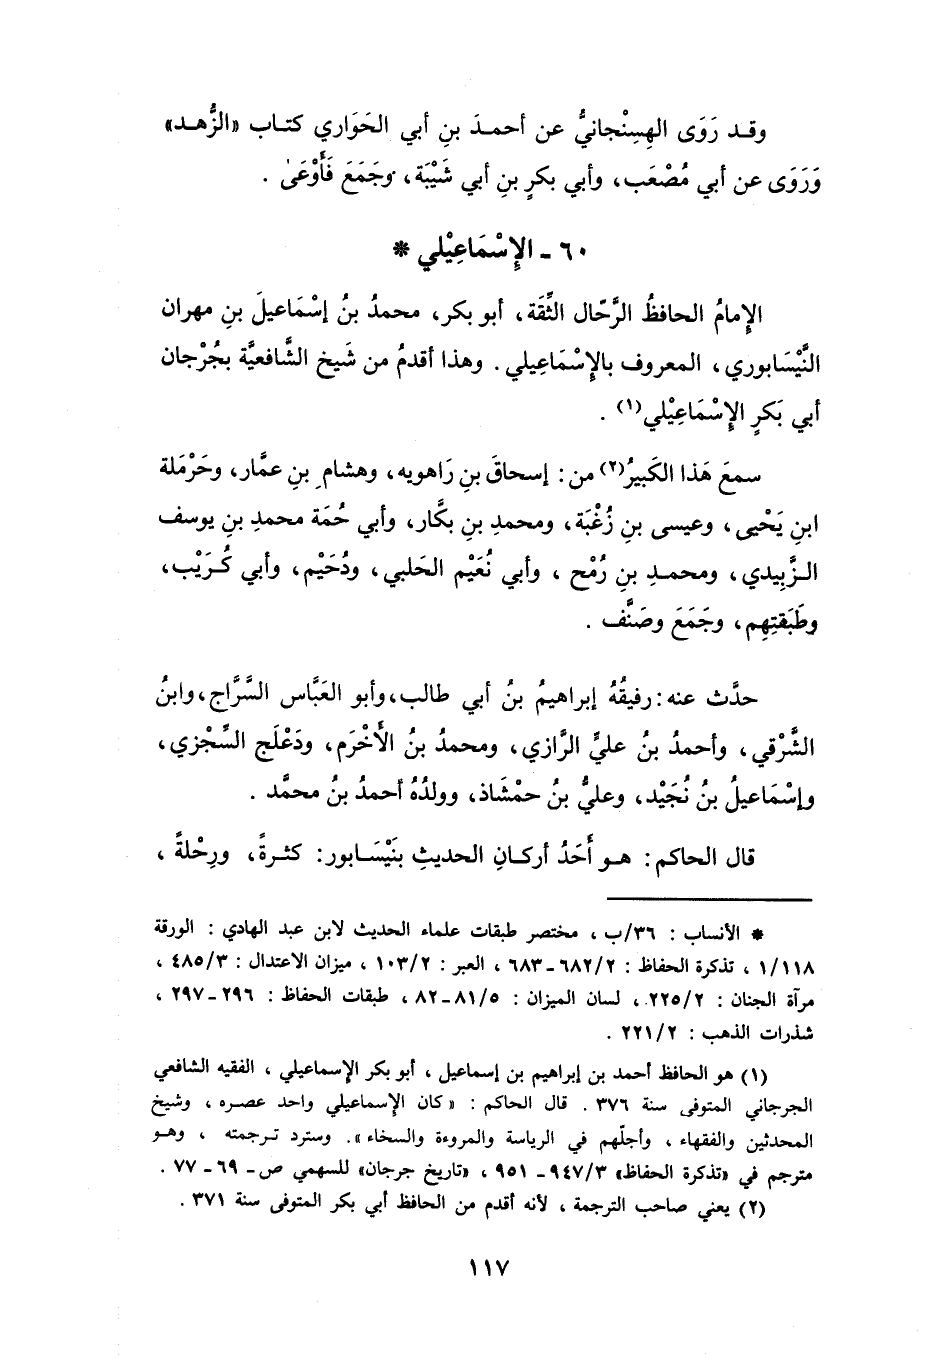 وقـد رَوَى الهِسِنْجانيُّ عن أحمـدَ بنِ أبي الحَوَاري كتـاب «الزُّهـد»
وَرَوَى عن أبي مُصْعَب، وأبي بكرٍ بنِ أبي شَيْبَة، وجَمَعَ فَأَوْعَىٰ .
٦٠ ـ الإِسْمَاعِيْلي *
الإِمامُ الحافظُ الرَّحّال الثِّقَة، أبو بكر، محمدُ بنُ إِسْمَاعيلَ بنِ مهران
النَّيْسَابوري، المعروف بالإِسْمَاعِيلي. وهذا أقدمُ من شَيخ الشَّافعيَّة بجُرْجان
أبي بَكرٍ الإِسْمَاعِيْلي(١) .
سمعَ هَذا الكَبيرُ(٢) من: إسحاقَ بنِ رَاهويه، وهشامِ بنِ عمَّار، وحَرْمَلة
ابنِ يَحْيى، وعيسى بنِ زُغْبَة، ومحمدِ بنِ بكَّار، وأبي حُمَة محمدِ بنِ يوسف
الـزَّبِيدي، ومحمـدِ بنِ رُمْح ، وأبي نُعَيْم الحَلبي، ودُحَيْم، وأبي كُـرَيْب،
وطَبَقتِهِم، وجَمَعَ وصَنَّف .
حدَّث عنه: رفيقُهُ إبراهيمُ بنُ أبي طالب، وأبو العَبَّاس السَّرَّاج، وابنُ
الشَّرْقي، وأحمدُ بنُ عليٍّ الرَّازي، ومحمدُ بنُ الأَخْرَم، ودَعْلَج السِّجْزي،
وإِسْمَاعيلُ بنُ نُجَيْد، وعليُّ بنُ حمْشَاذ، وولدُهُ أحمدُ بنُ محمَّد .
قال الحاكم: هـو أَحَدُ أركـانِ الحديثِ بنَيْسَـابور: كثـرةً، ورِحْلةً ،
* الأنساب : ٣٦/ب ، مختصر طبقات علماء الحديث لابن عبد الهادي : الورقة
١/١١٨ ، تذكرة الحفاظ : ٦٨٢/٢ ـ ٦٨٣ ، العبر : ١٠٣/٢ ، ميزان الاعتدال : ٤٨٥/٣ ،
مرآة الجنان : ٢٢٥/٢ ، لسان الميزان : ٨١/٥ ـ ٨٢ ، طبقات الحفاظ : ٢٩٦ ـ ٢٩٧ ،
شذرات الذهب : ٢٢١/٢ .
(١) هو الحافظ أحمد بن إبراهيم بن إسماعيل ، أبو بكر الإسماعيلي ، الفقيه الشافعي
الجرجاني المتوفى سنة ٣٧٦ . قال الحاكم : « كان الإسماعيلي واحد عصره ، وشيخ
المحدثين والفقهاء ، وأجلّهم في الرياسة والمروءة والسخاء ». وسترد ترجمته ، وهـو
مترجم في «تذكرة الحفاظ» ٩٤٧/٣ ـ ٩٥١ ، «تاريخ جرجان» للسهمي ص ـ ٦٩ ـ ٧٧ .
(٢) يعني صاحب الترجمة ، لأنه أقدم من الحافظ أبي بكر المتوفى سنة ٣٧١ .
١١٧